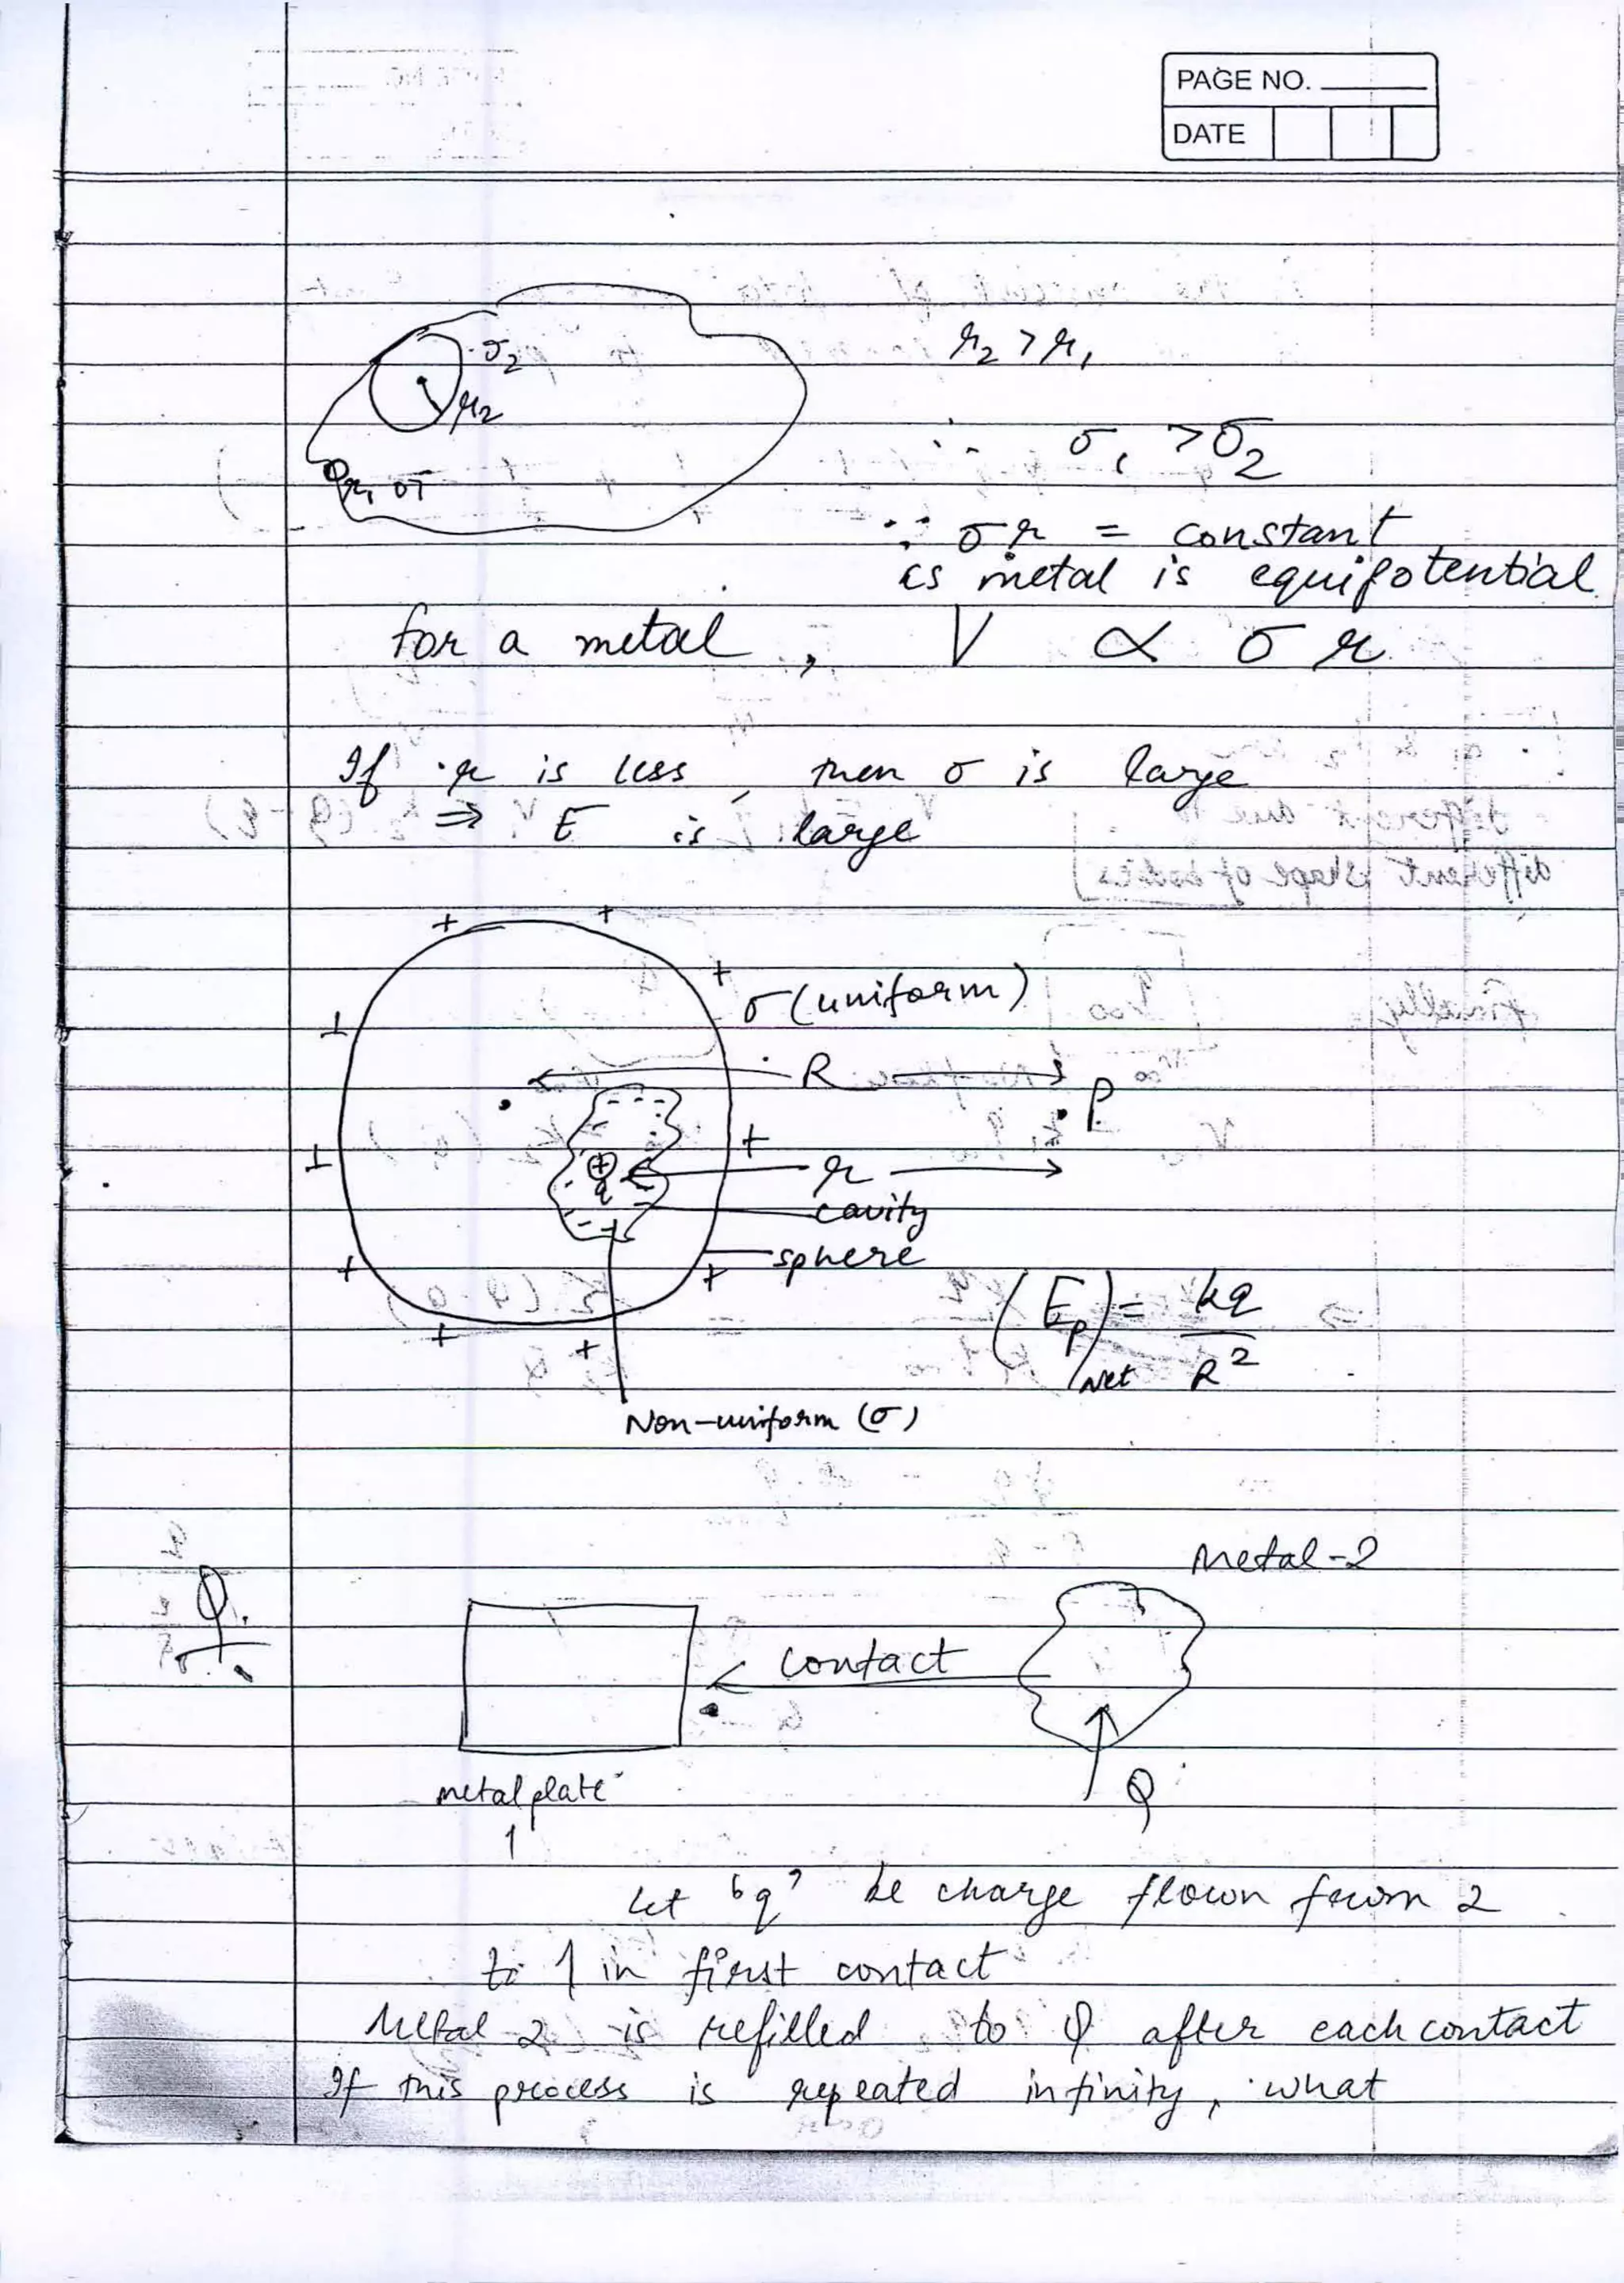 PAGE NO.
DATE
r₂ > r₁
σ₂
r₂
∴ σ₁ > σ₂
r₁ σ₁
∵ σr = constant
as metal is equipotential
for a metal, V ∝ σ r
If r is less, then σ is large
⇒ E is large
σ (uniform)
R
P
q
r
cavity
sphere
(E_P)_Net = kq/R²
Non-uniform (σ)
Metal-2
Q.
contact
metal plate
1
Q
let 'q' be charge flown from 2
to 1 in first contact
Metal 2 is refilled to Q after each contact
If this process is repeated infinity, what